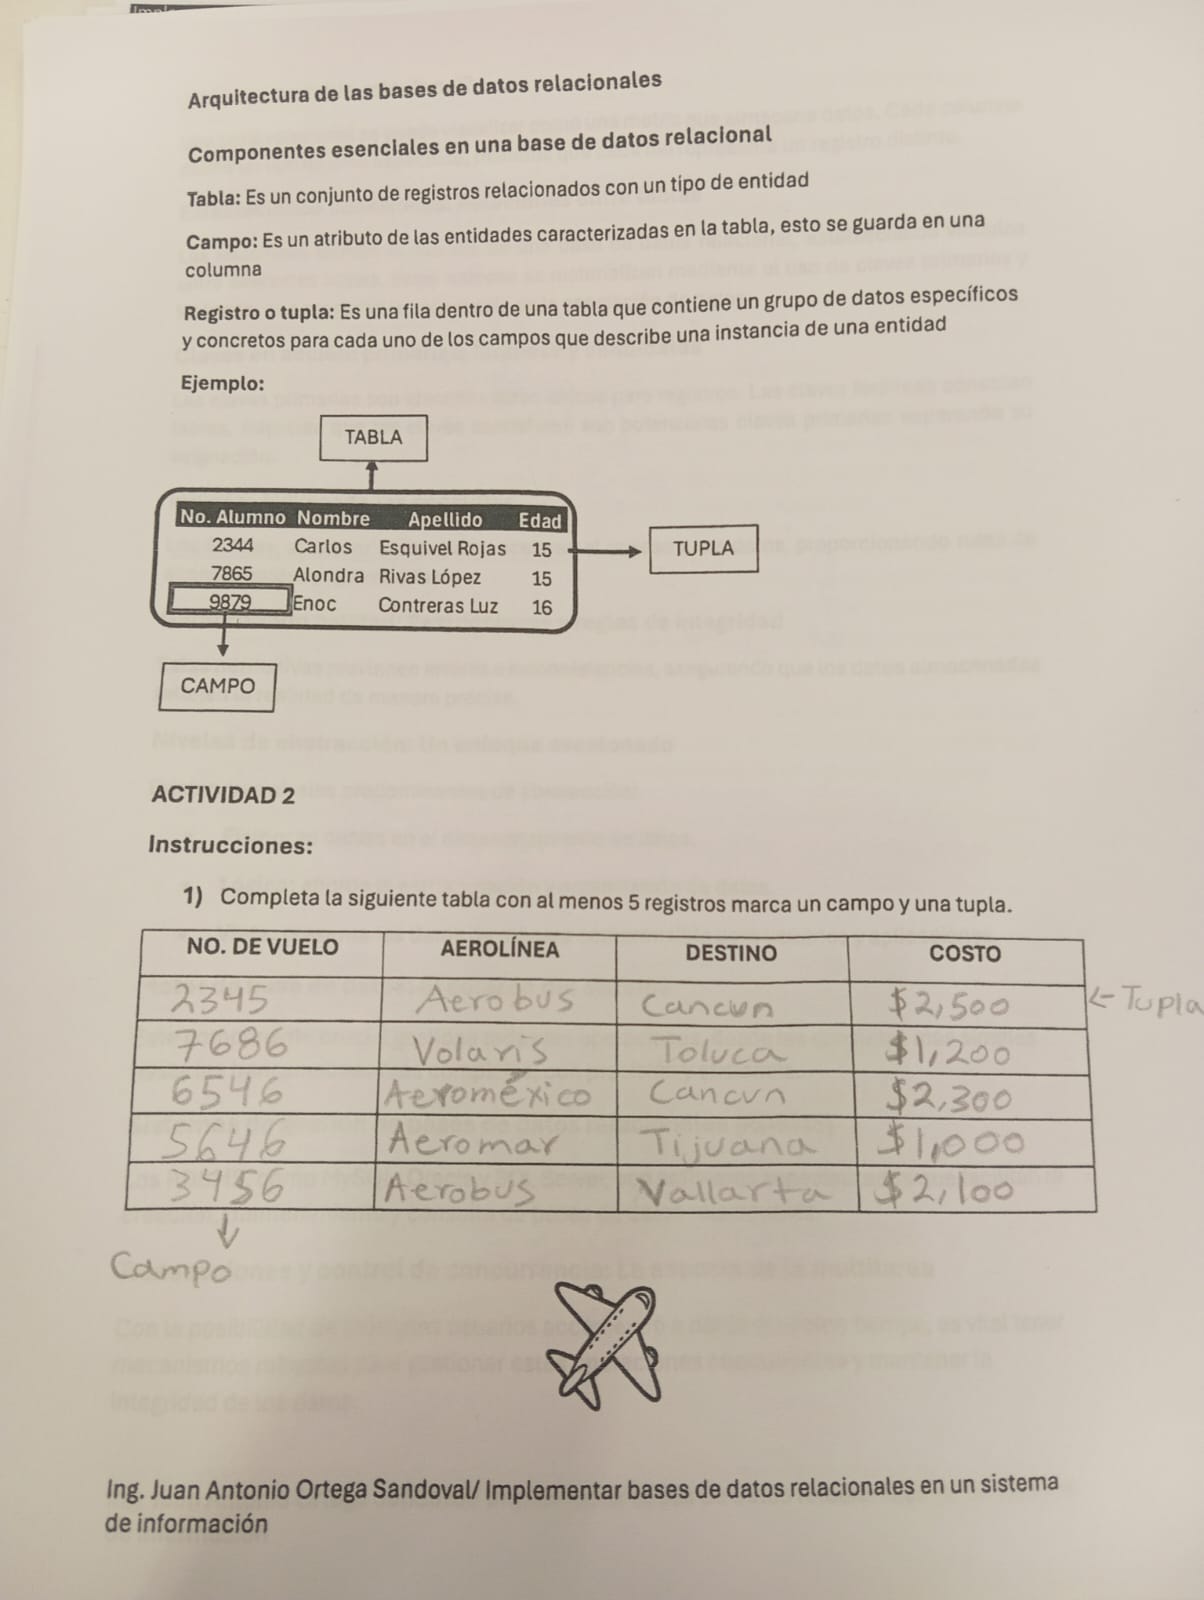 Arquitectura de las bases de datos relacionales
Componentes esenciales en una base de datos relacional
Tabla: Es un conjunto de registros relacionados con un tipo de entidad
Campo: Es un atributo de las entidades caracterizadas en la tabla, esto se guarda en una
columna
Registro o tupla: Es una fila dentro de una tabla que contiene un grupo de datos específicos
y concretos para cada uno de los campos que describe una instancia de una entidad
Ejemplo:
TABLA
No. Alumno Nombre Apellido Edad
2344 Carlos Esquivel Rojas 15
TUPLA
7865 Alondra Rivas López 15
9879 Enoc Contreras Luz 16
CAMPO
ACTIVIDAD 2
Instrucciones:
1) Completa la siguiente tabla con al menos 5 registros marca un campo y una tupla.
NO. DE VUELO AEROLÍNEA DESTINO COSTO
2345 Aerobus Cancun $2,500 ← Tupla
7686 Volaris Toluca $1,200
6546 Aeroméxico Cancun $2,300
5646 Aeromar Tijuana $1,000
3456 Aerobus Vallarta $2,100
Campo
Ing. Juan Antonio Ortega Sandoval/ Implementar bases de datos relacionales en un sistema
de información